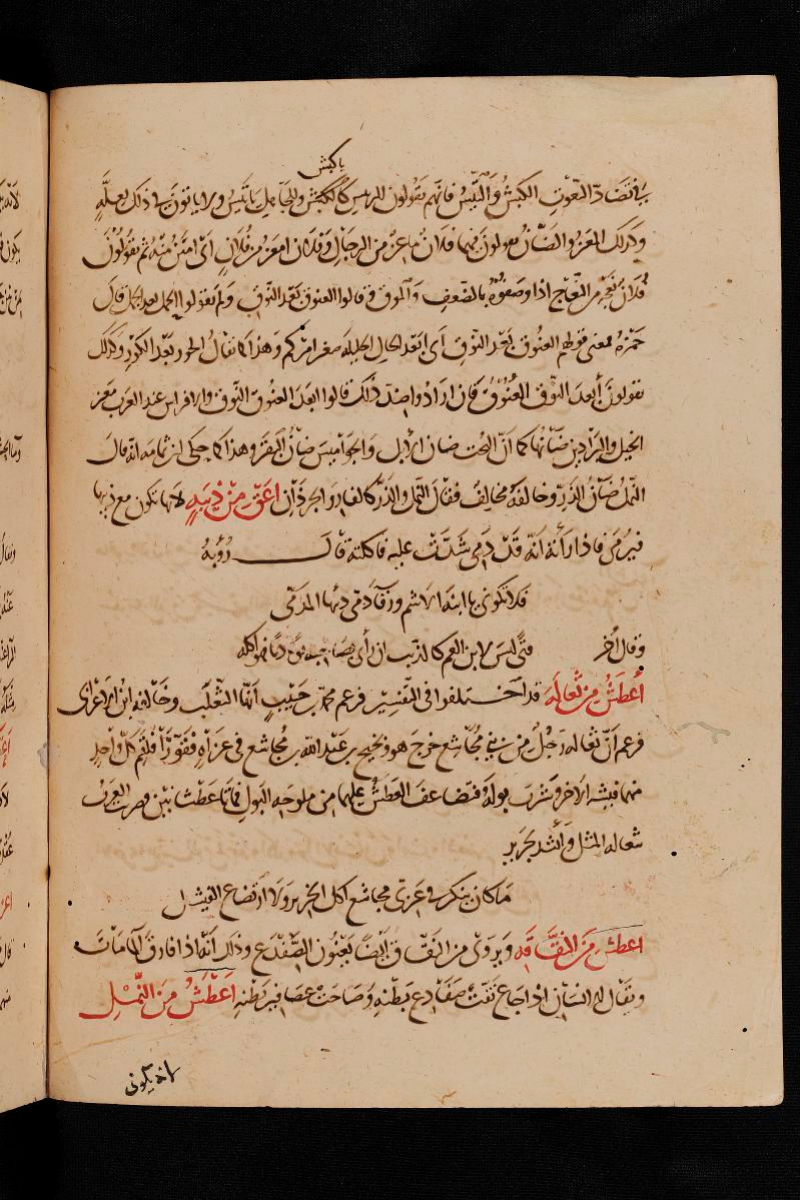 يا كبش
في تضاد النعوت الكبش والتيس فانهم يقولون للرئيس كالكبش وللجاهل يا تيس ولا ياتون في ذلك بعلة
وكذلك المعز والضان يقولون فيهما فلان ماعز من الرجال وفلان امعز من فلان اى امتن منه ثم يقولون
فلان نعجة من النعاج اذا وصفوه بالضعف والموق وقالوا العنوق بعد النوق ولم يقولوا الحمل بعد الجمل قال
حمزة معنى قولهم العنوق بعد النوق اى ابعد الحال الجليلة صغر امركم وهذا كما يقال الحور بعد الكور وكذلك
يقولون أبعد النوق العنوق فان ارادوا ضد ذلك قالوا ابعد العنوق النوق والافراس عند العرب معز
الخيل والبراذين ضانها كما أن البخت ضان الابل والجواميس ضان البقر وهذا كما حكى ان ثمامه انه قال
النمل ضأن الذر وخالفه مخالف فقال النمل والذر كالفار والجرذان اعق من ذئبه لانها تكون مع ذئبها
فيرمى فاذا رأته انه قد دمى شدت عليه فاكلته قال رؤبة
فلا تكونى يا ابنة الاشم ورقا دمى ذئبها المدمى
وقال آخر فتى ليس لابن العم كالذئب ان رأى بصاحبه يوما دما فهو اكله
أعطش من ثعالة قد اختلفوا فى التفسير فزعم محمد بن حبيب انها الثعلب وخالفه ابن الاعرابى
فزعم أن ثعاله رجل من بنى مجاشع خرج هو ونجيح بن عبد الله بن مجاشع فى غزاة ففوزا فلقم كل واحد
منهما فيشة الاخر وشرب بوله فتضاعف العطش عليهما من ملوحه البول فماتا عطشانين فضربت العرب
بثعاله المثل وأنشد لجرير
ما كان ينكر فى غزى مجاشع اكل الخزير ولا ارتضاع الفيشل
اعطش من النقاقه ويروى من النقاق ايضا يعنون الضفدع وذلك أنه اذا فارق الما مات
ويقال للانسان اذا جاع نقت ضفادع بطنه وصاحت عصافير بطنه أعطش من النمل
لانه يكونى